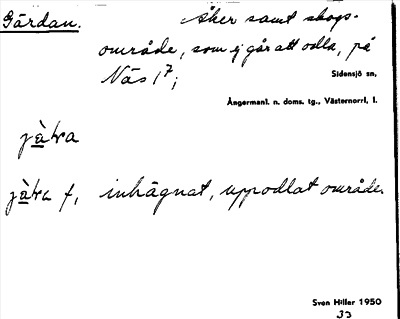 Gärdan. Åker samt skogs-
område, som ej går att odla, på
Näs 1⁷;
Sidensjö sn,
Ångermanl. n. doms. tg., Västernorrl. l.
inhägnat, uppodlat område.
Sven Hiller 1950
33